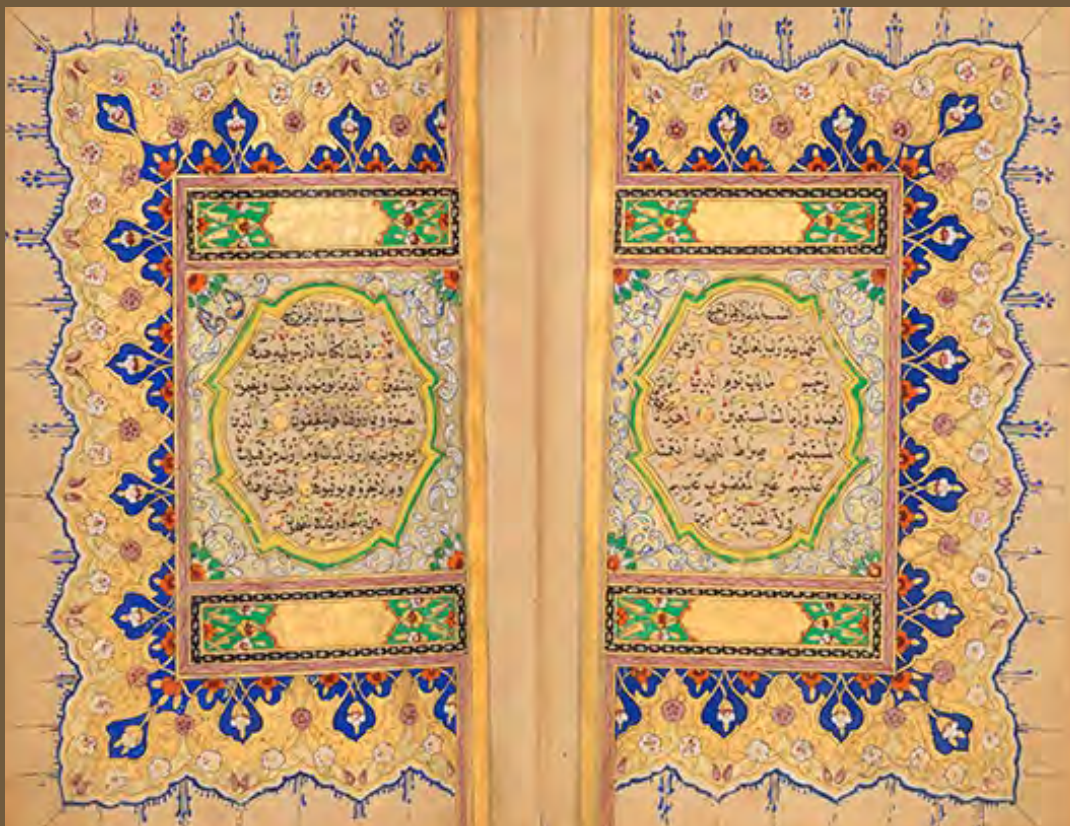 بسم الله الرحمن الرحيم
الحمد لله رب العالمين الرحمن
الرحيم مالك يوم الدين اياك
نعبد واياك نستعين اهدنا الصراط
المستقيم صراط الذين انعمت
عليهم غير المغضوب عليهم
ولا الضالين امين
بسم الله الرحمن الرحيم
الم ذلك الكتاب لا ريب فيه هدى
للمتقين الذين يؤمنون بالغيب ويقيمون
الصلوة ومما رزقناهم ينفقون والذين
يؤمنون بما انزل اليك وما انزل من قبلك
وبالاخرة هم يوقنون اولئك على هدى
من ربهم واولئك هم المفلحون